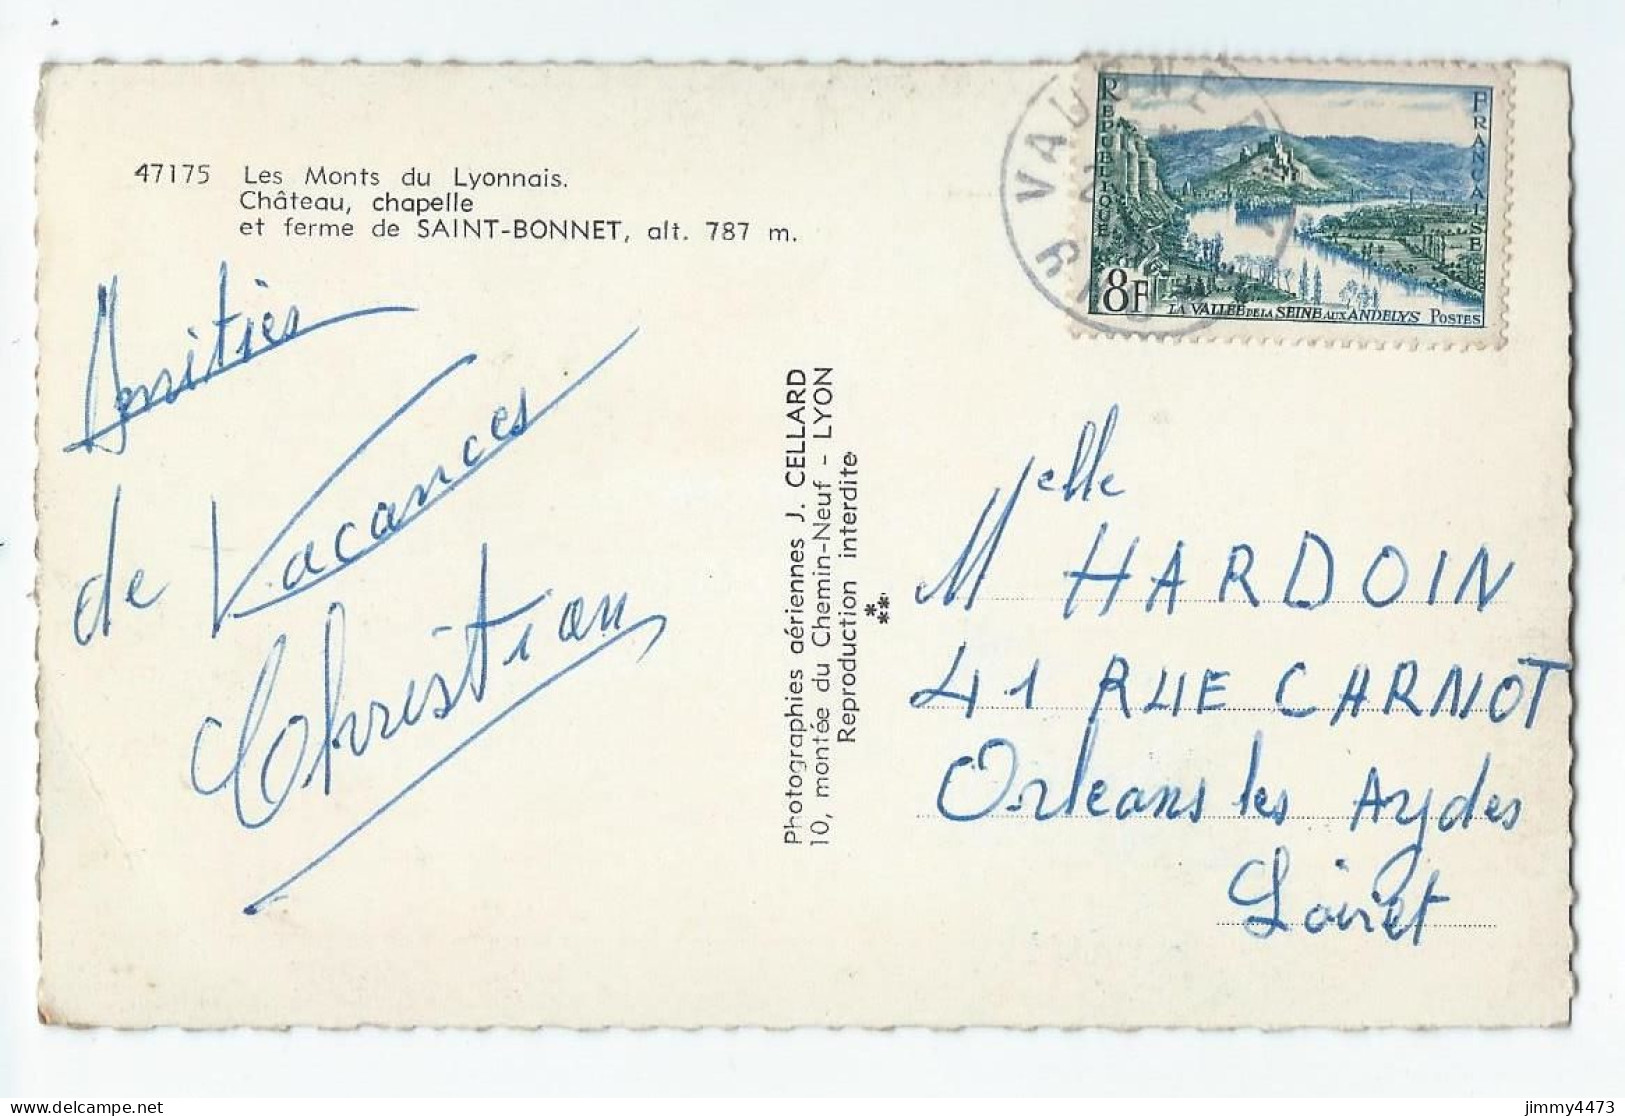 47175 Les Monts du Lyonnais.
Château, chapelle
et ferme de SAINT-BONNET, alt. 787 m.
Amitiés
de Vacances
Christian
Photographies aériennes J. CELLARD
10, montée du Chemin-Neuf - LYON
Reproduction interdite
VAUGNERAY
RÉPUBLIQUE
FRANÇAISE
8F
LA VALLÉE DE LA SEINE AUX ANDELYS POSTES
Melle HARDOIN
41 RUE CARNOT
Orleans les Aydes
Loiret
jimmy4473